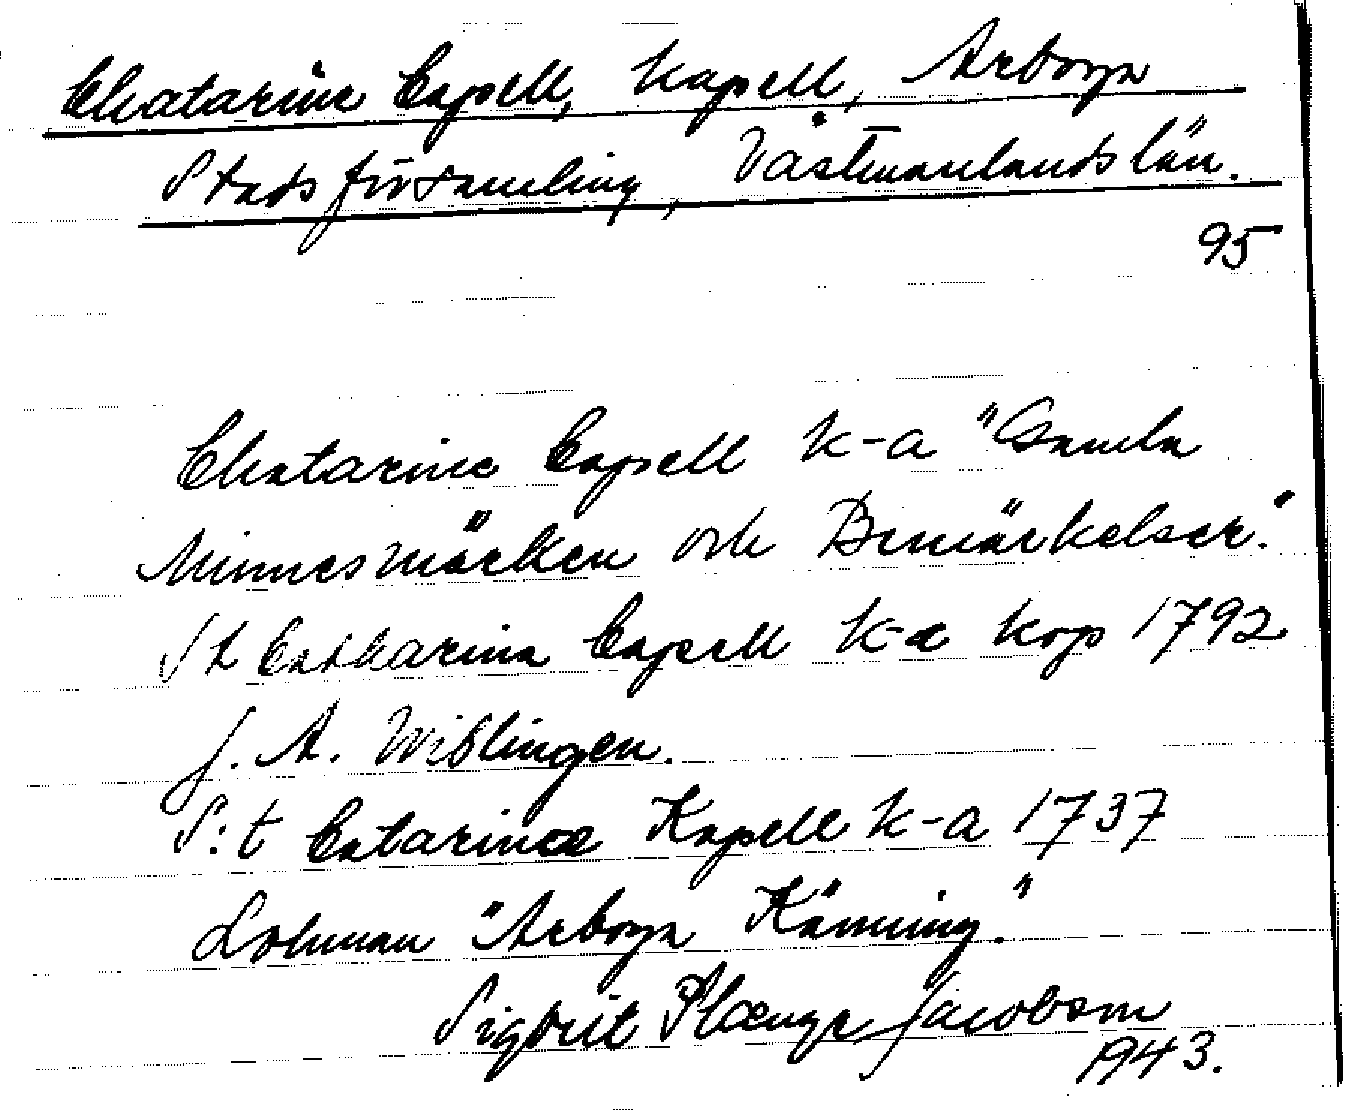 Chatarine Capell, Kapell, Arboga
Stadsförsamling, Västmanlandslän.
95
Chatarine Capell k-a "Gamla
Minnesmärken och Bemärkelser."
St Catharina Capell k-a kop 1792
J. A. Wiblingen.
S:t Catarinæ Kapell k-a 1737
Lohman "Arboga Känning."
Sigbrit Plænge Jacobson
1943.